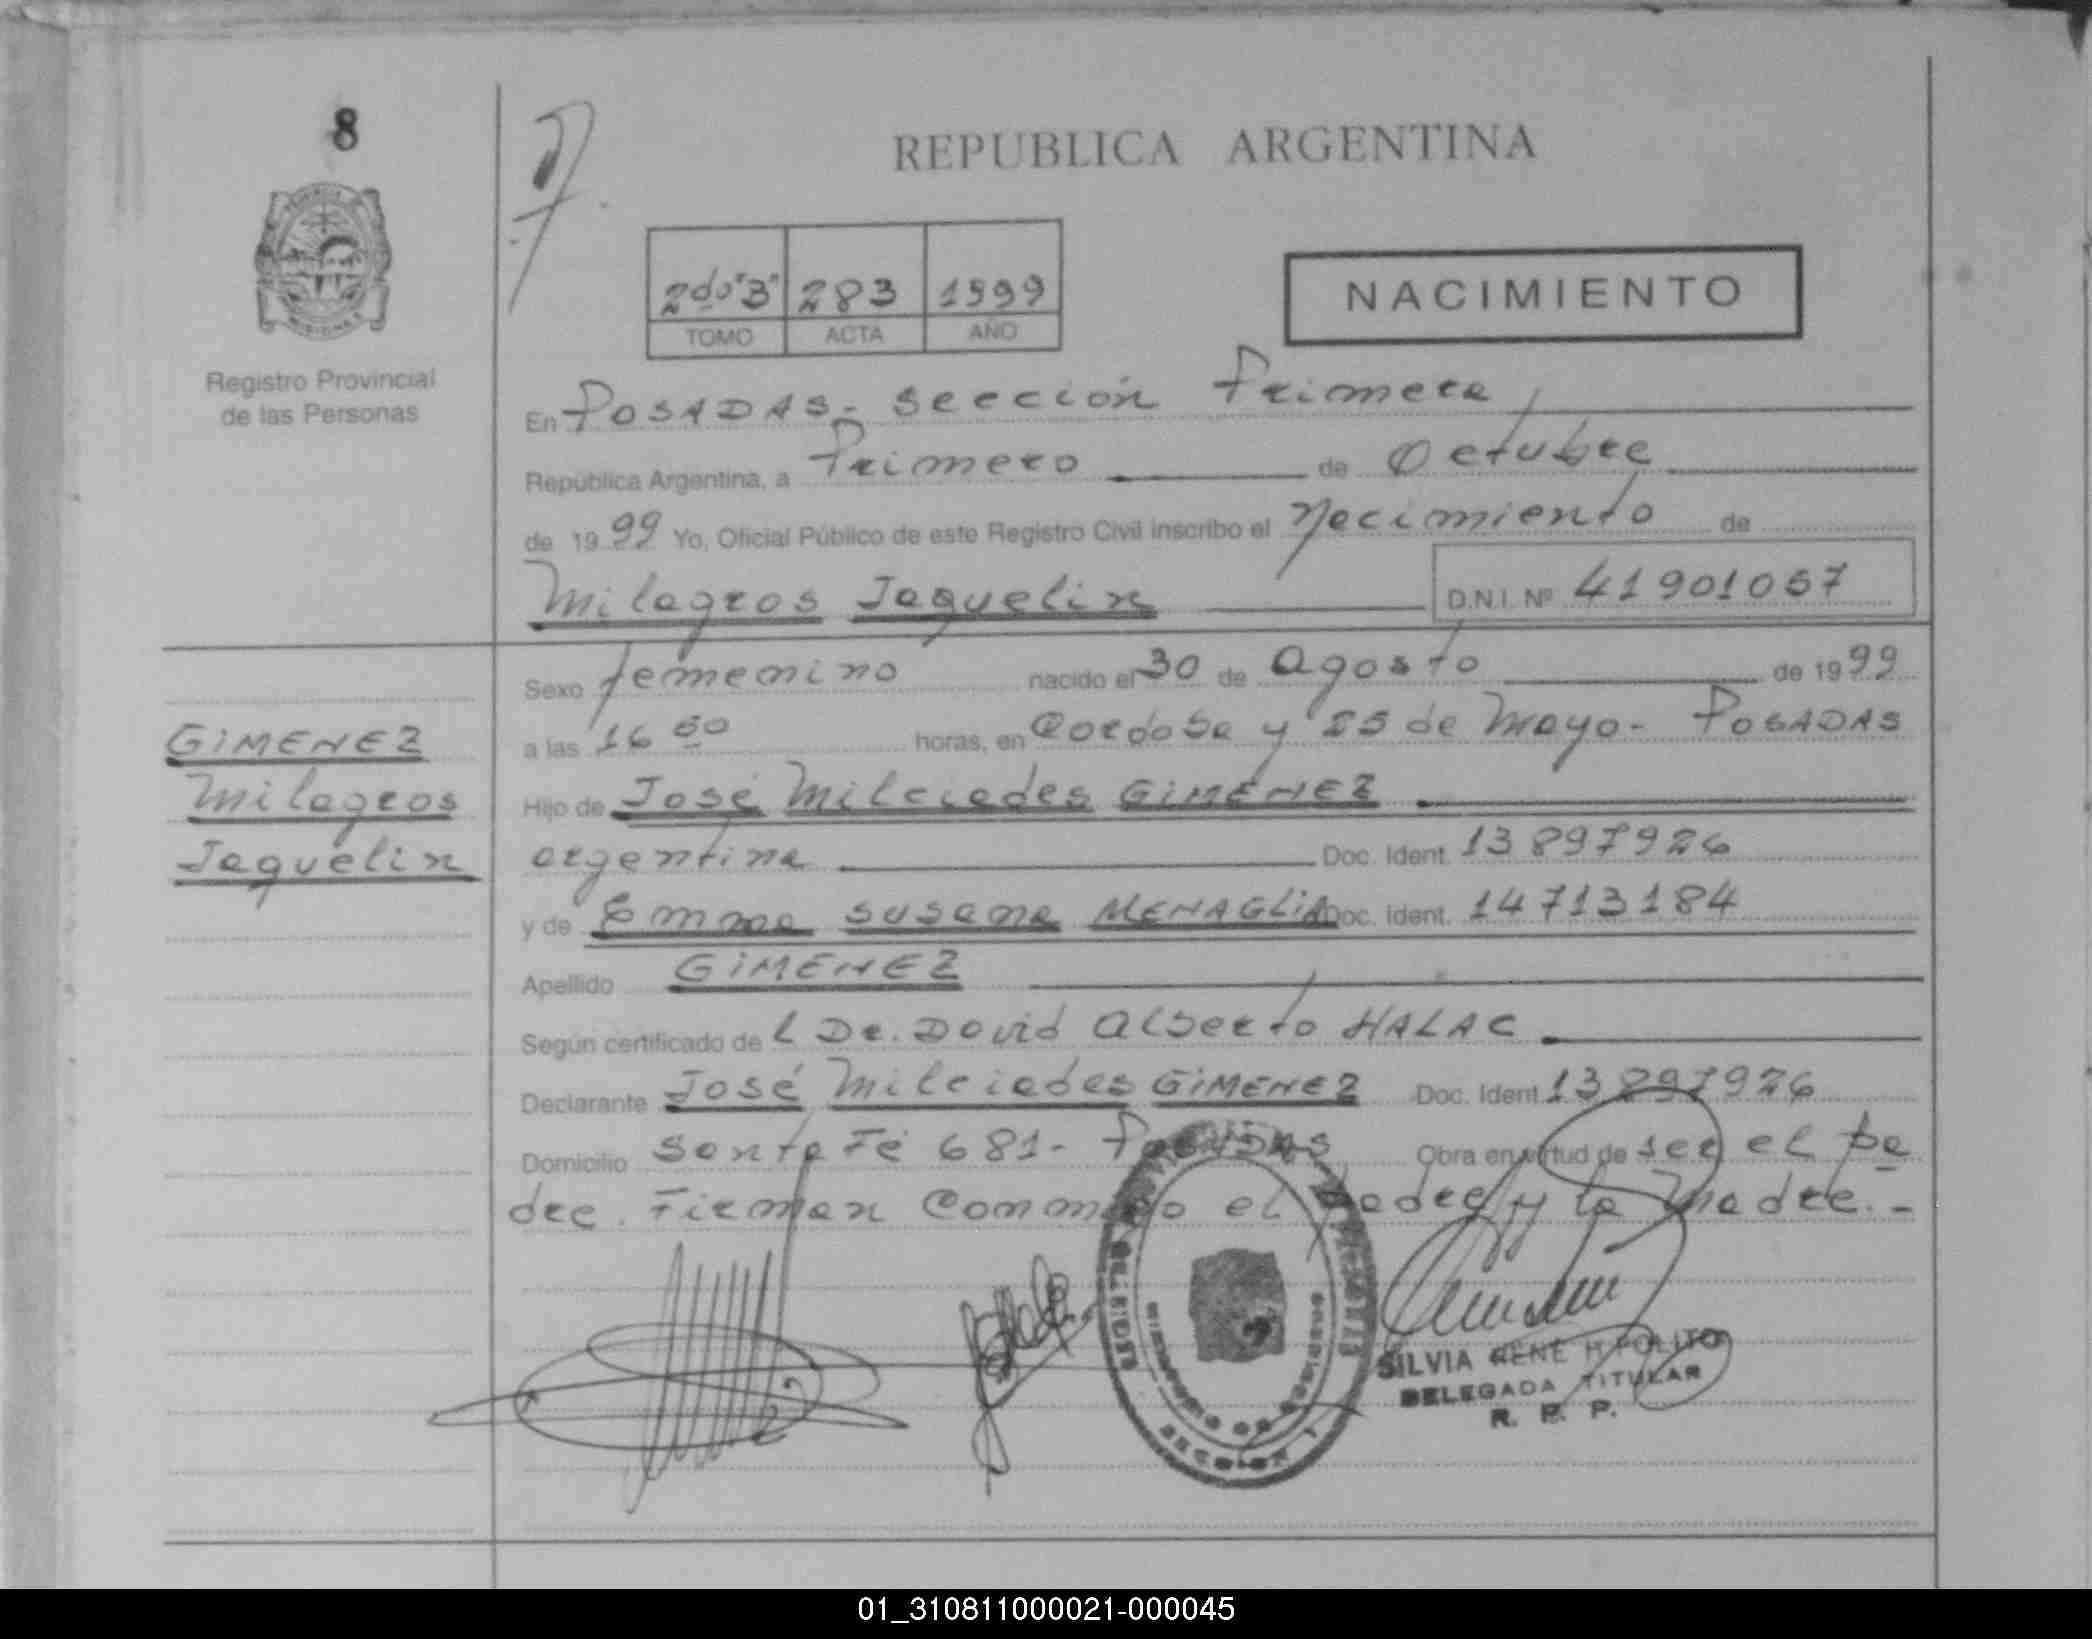 8
REPUBLICA ARGENTINA
2do"B" 283 1999
TOMO ACTA AÑO
NACIMIENTO
Registro Provincial
de las Personas
En POSADAS - Sección Primera
República Argentina, a Primero de Octubre
de 1999 Yo, Oficial Público de este Registro Civil inscribo el Nacimiento de
Milagros Jaquelin D.N.I. Nº 41901057
Sexo femenino nacido el 30 de Agosto de 1999
a las 16 50 horas, en Cordoba y 25 de Mayo - POSADAS
GIMENEZ
Milagros
Jaquelin
Hijo de José Milciades GIMENEZ
argentina Doc. Ident. 13897926
y de Emma Susana MENAGLIA Doc. ident. 14713184
Apellido GIMENEZ
Según certificado de l Dr. David Alberto HALAC
Declarante José Milciades GIMENEZ Doc. Ident 13897926
Domicilio Santa Fé 681 - POSADAS Obra en virtud de ser el pa
dre. Firman Conmigo el padre y la Madre. -
SECCION 1
SILVIA RENE HIPOLITO
DELEGADA TITULAR
R. P. P.
01_310811000021-000045